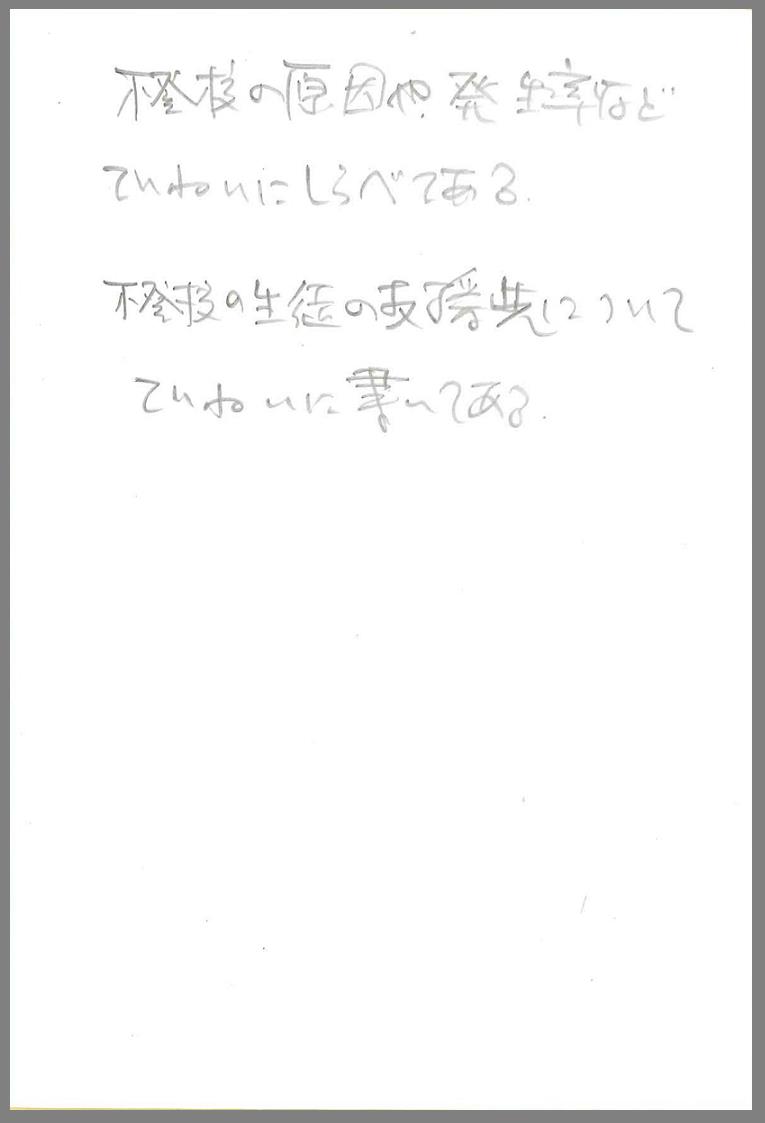 不登校の原因や発生率など
ていねいにしらべてある.
不登校の生徒の支援先について
ていねいに書いてある.